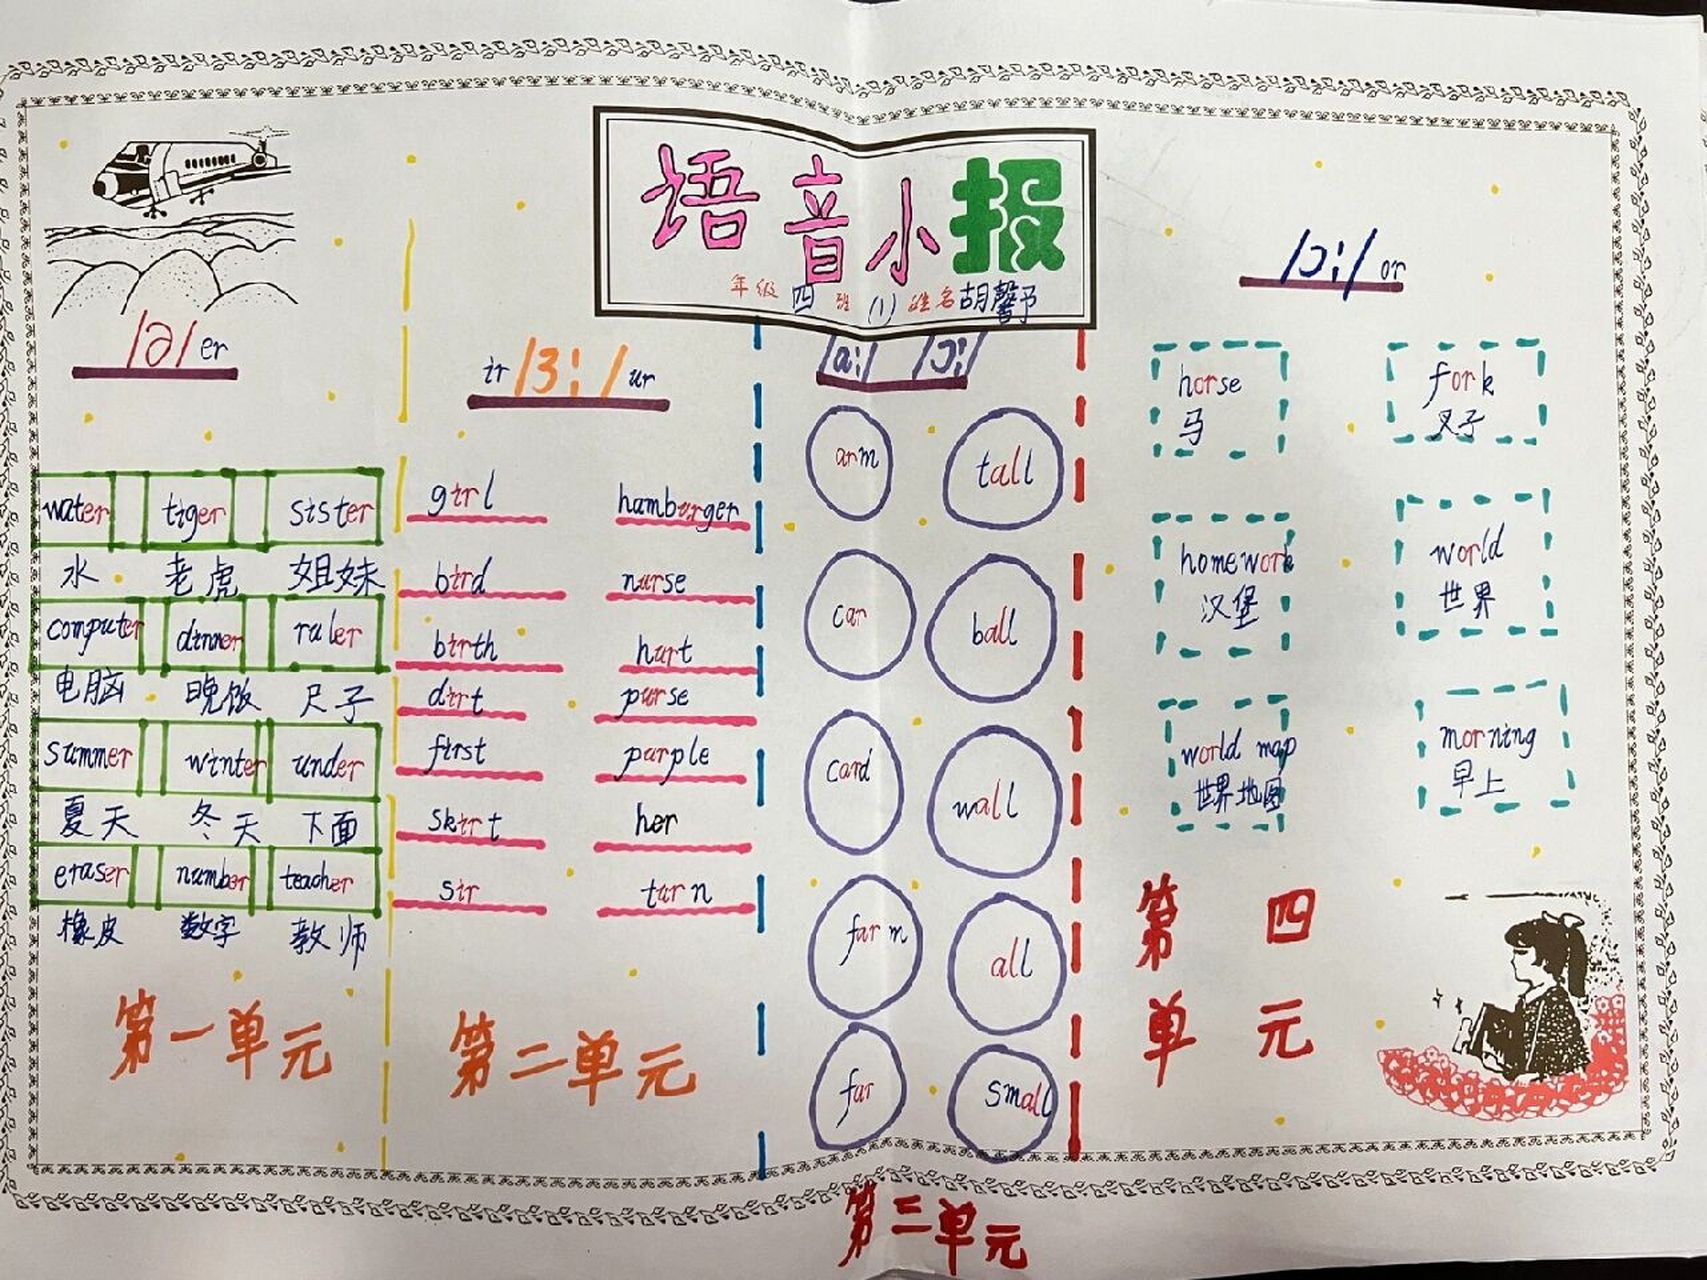 语音小报
年级 四 班 (1) 姓名 胡馨予
/ə/ er
water tiger sister
水 老虎 姐妹
computer dinner ruler
电脑 晚饭 尺子
summer winter under
夏天 冬天 下面
eraser number teacher
橡皮 数字 教师
第一单元
ir /ɜː/ ur
girl hamburger
bird nurse
birth hurt
dirt purse
first purple
skirt her
sir turn
第二单元
/ɑː/ /ɔː/
arm tall
car ball
card wall
farm all
far small
第三单元
/ɔː/ or
horse fork
马 叉子
homework world
汉堡 世界
world map morning
世界地图 早上
第四
单元